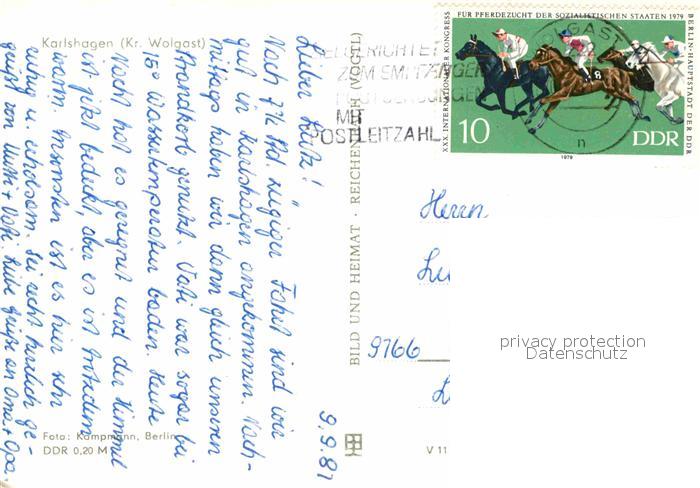 Karlshagen (Kr. Wolgast)
Lieber Lutz!
Nach 7½ Std. zügiger Fahrt sind wir
gut in Karlshagen angekommen. Nach-
mittags haben wir dann gleich unseren
Strandkorb genutzt. Vati war sogar bei
15° Wassertemperatur baden. Heute
Nacht hat es geregnet und der Himmel
ist jetzt bedeckt, aber es ist trotzdem
warm. Ansonsten ist es hier sehr
ruhig u. erholsam. Sei recht herzlich ge-
grüßt von Mutti + Vati. Liebe Grüße an Oma + Opa.
9.9.81
Foto: Kampmann, Berlin
DDR 0,20 M
BILD UND HEIMAT · REICHENBACH (VOGTL)
V 11
MIT
POSTLEITZAHL
XXX. INTERNATIONALER KONGRESS
FÜR PFERDEZUCHT DER SOZIALISTISCHEN STAATEN 1979
BERLIN-HAUPTSTADT DER DDR
8
10
DDR
1979
Herrn
9766
privacy protection
Datenschutz